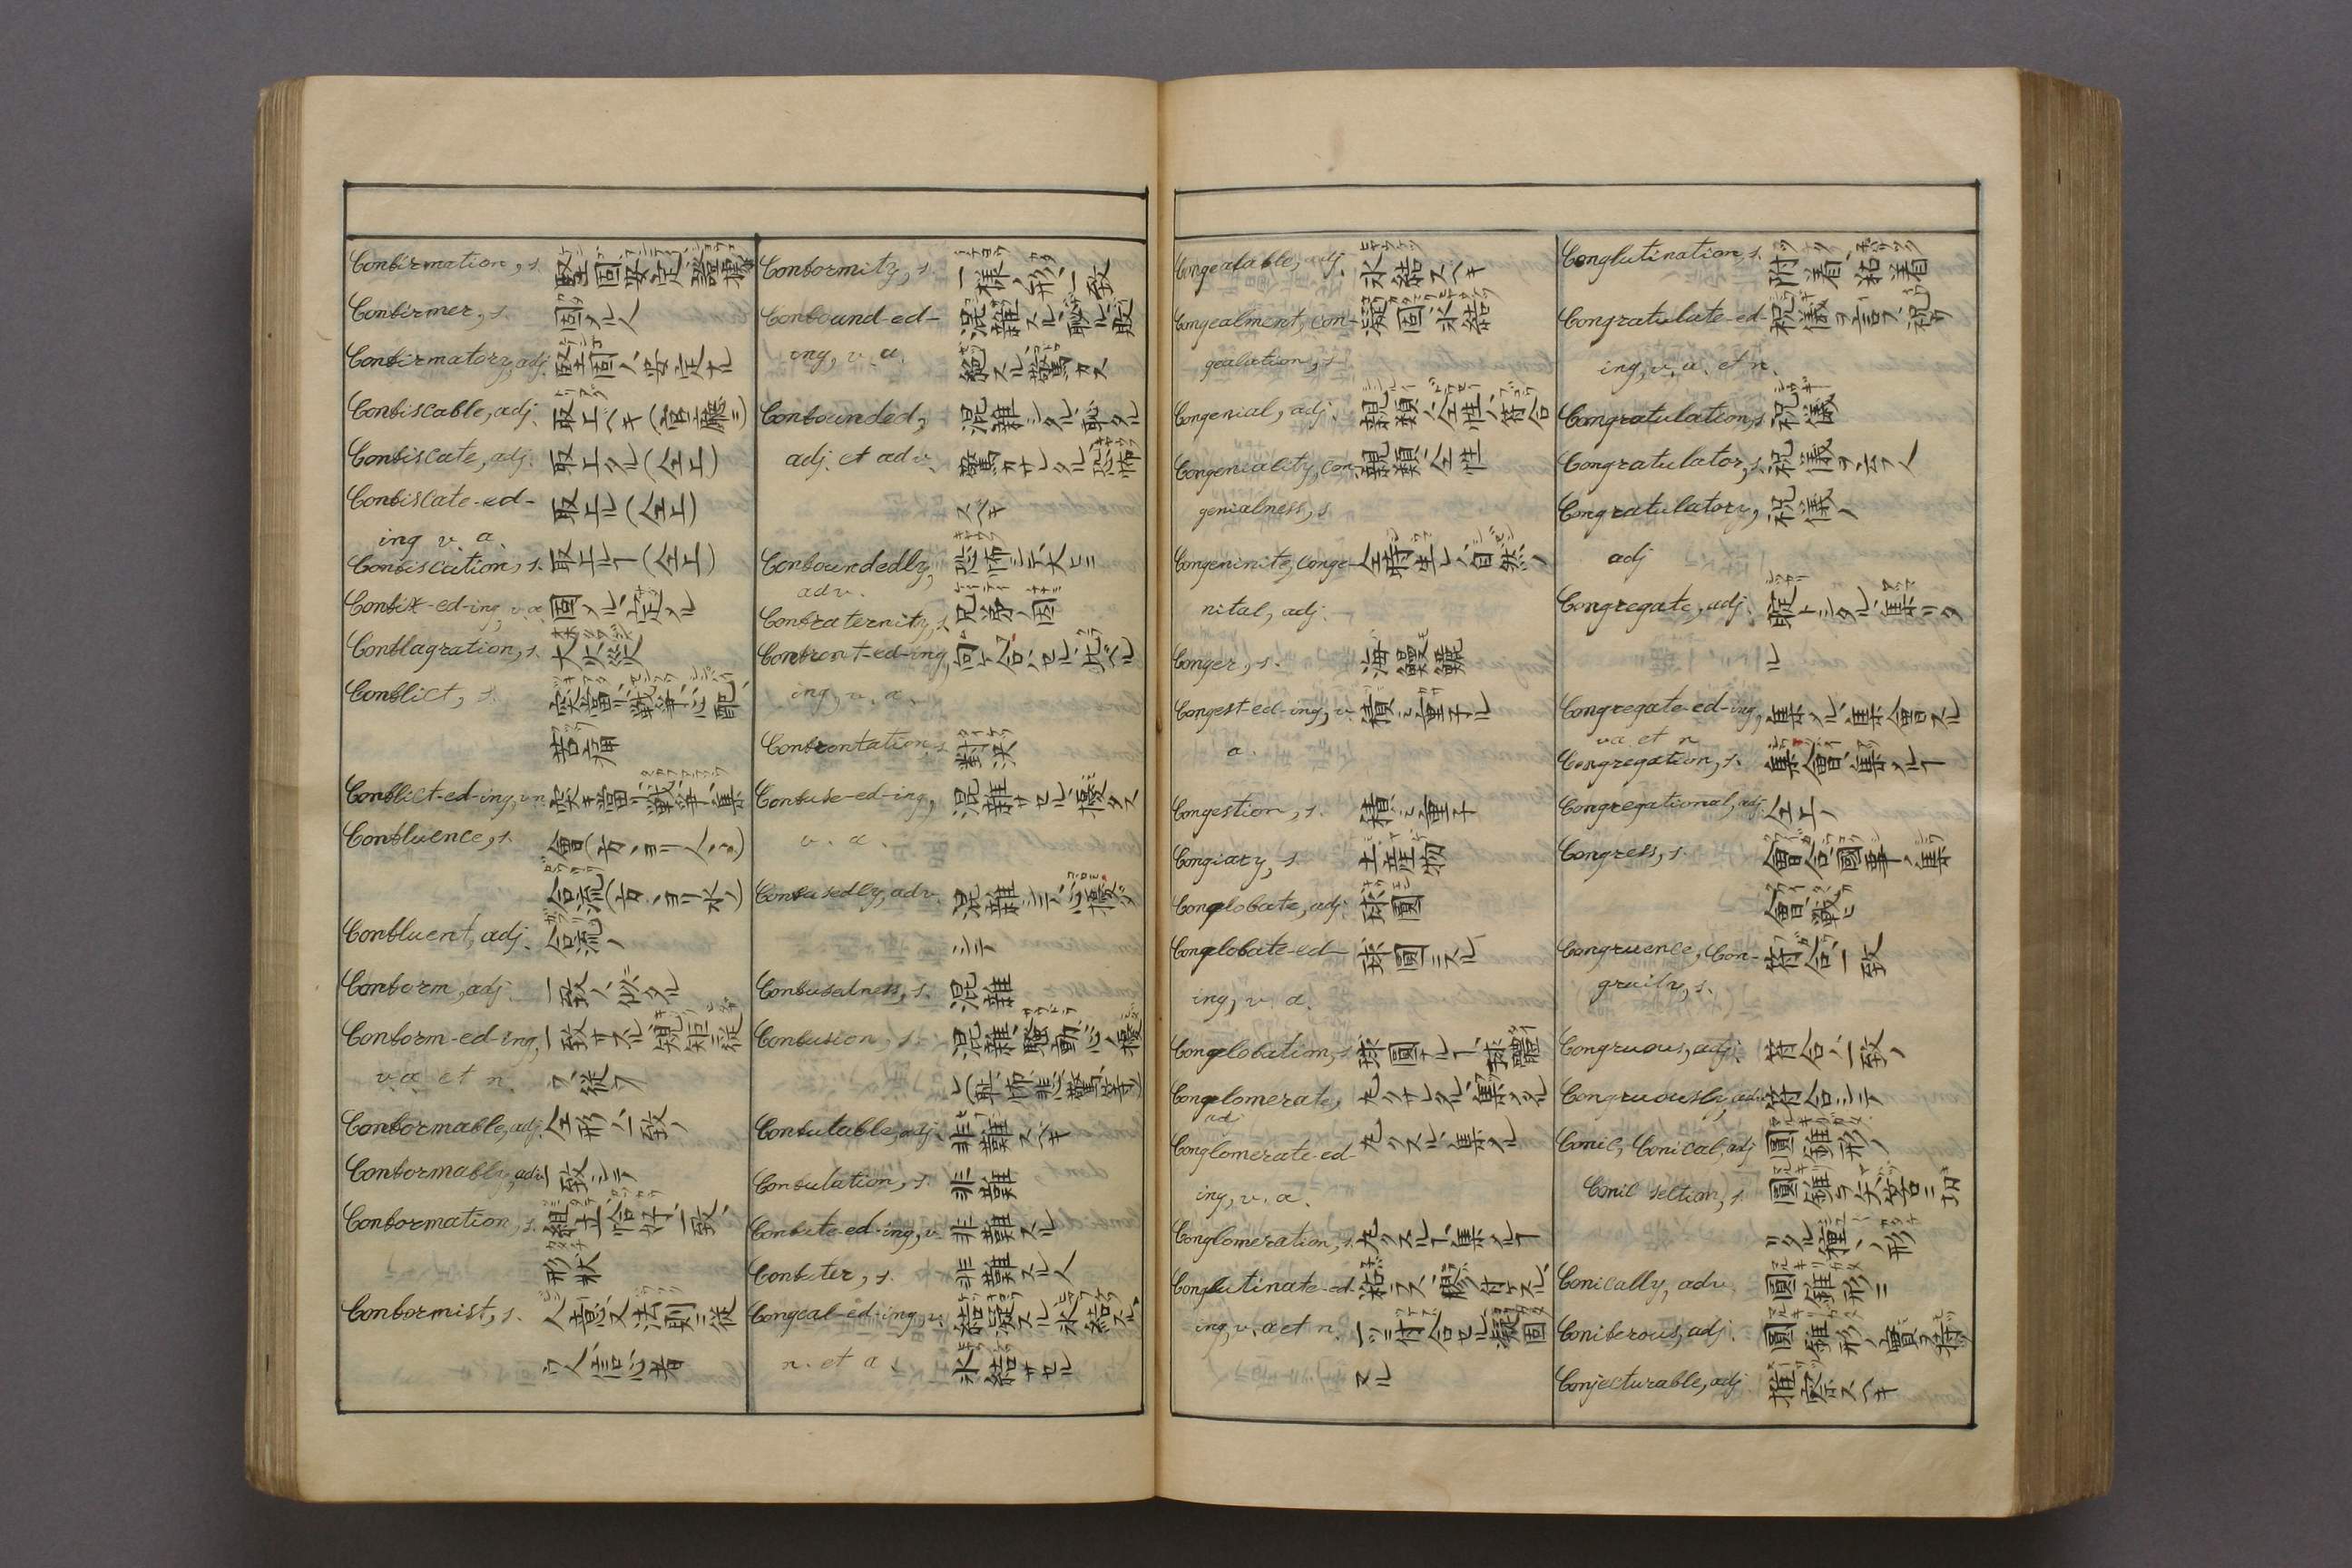 Confirmation, s. 堅固、安定、證據
Confirmer, s. 固ムル人
Confirmatory, adj. 堅固ノ、安定ナル
Confiscable, adj. 取上ヘキ(官廳ニ)
Confiscate, adj. 取上タル(仝上)
Confiscate-ed- 取上ル(仝上)
ing v. a.
Confiscation, s. 取上ルヿ(仝上)
Confix-ed-ing, v. a. 固メル、定メル
Conflagration, s. 大火災
Conflict, s. 突當ル、戰爭、心配、
苦痛
Conflict-ed-ing, v. n. 突キ當ル、戰爭
Confluence, s. 會(方々ヨリ人ノ)
合流(方々ヨリ水ノ)
Confluent, adj. 合流ノ
Conform, adj. 一致ノ、似タル
Conform-ed-ing, 一致サスル、規矩ニ從
v. a. et n. フ、從フ
Conformable, adj. 仝形ノ、一致ノ
Conformably, adv. 一致シテ
Conformation, s. 組立、恰好、一致、
形狀
Conformist, s. 人意又法則ニ從
フ人、信心者
Conformity, s. 一樣ノ形、一致
Confound-ed- 混雜スル、恥ル、敗
ing, v. a. 絶スル、驚カス
Confounded, 混雜シタル、恥タル
adj. et adv. 驚カサレタル、恐怖
スヘキ
Confoundedly, 恐怖シテ、大ヒニ
adv.
Confraternity, s. 兄弟ノ因
Confront-ed-ing, 向ケ合ハセル、比ベル
ing, v. a.
Confrontation, s. 對決
Confuse-ed-ing, 混雜サセル、擾タス
v. a.
Confusedly, adv. 混雜シテ、心擾ダ
シテ
Confusedness, s. 混雜
Confusion, s. 混雜、騷動、心ノ擾
レ(恥、怖、悲、驚等)
Confutable, adj. 非難スヘキ
Confutation, s. 非難
Confute-ed-ing, v. 非難スル
Confuter, s. 非難スル人
Congeal-ed-ing, v. 結凝スル、氷結スル、
n. et a. 氷結サセル
Congealable, adj. 氷結スヘキ
Congealment, con- 凝固、氷結
gealation, s.
Congenial, adj. 親類ノ、仝性ノ、符合
Congeniality, con- 親類、仝性
genialness, s.
Congeninite, conge- 仝時生レノ、自然ノ
nital, adj.
Conger, s. 海鰻鱺
Congest-ed-ing, v. 積ミ重子ル
a.
Congestion, s. 積ミ重子
Congiary, s. 土産物
Conglobate, adj. 球圓
Conglobate-ed- 球圓ニスル
ing, v. a.
Conglobation, s. 球圓ナルヿ、球體
Conglomerate, 丸クサレタル、集メタル
adj
Conglomerate-ed- 丸クスル、集メル
ing, v. a.
Conglomeration, s. 丸クスルヿ、集メルヿ
Conglutinate-ed- 粘ラス、膠付ケスル、
ing, v. a et n. 一ツニ付合セル、凝固
スル
Conglutination, s. 附着、粘着
Congratulate-ed- 祝儀ヲ言フ、祝ヒ
ing, v. a. et n.
Congratulation, s. 祝儀
Congratulator, s. 祝儀ヲ云フ人
Congratulatory, 祝儀ノ
adj
Congregate, adj. 聢トシタル、集リタ
ル
Congregate-ed-ing, 集メル、集會スル
va. et n
Congregation, s. 集會、集メルヿ
Congregational, adj. 仝上ノ
Congress, s. 會合、國事ノ集
會、戰ヒ
Congruence, Con- 符合、一致
gruity, s.
Congruous, adj. 符合ノ、一致ノ
Congruously, adv. 符合シテ
Conic, Conical, adj 圓錐形ノ
Conic section, s. 圓錐ヲ矢筈ニ切
リタル種々ノ形
Conically, adv. 圓錐形ニ
Coniferous, adj. 圓錐形ノ實ヲ持
Conjecturable, adj. 推察スヘキ